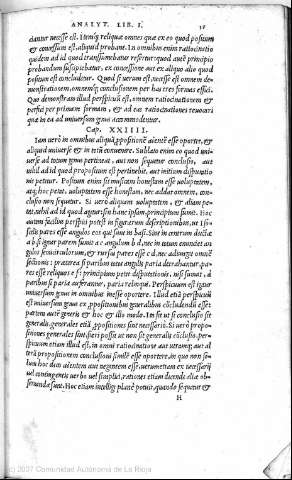 ANALYT. LIB. I.
ciantur necesse est. Itemq; reliquæ omnes quæ ex eo quod positum
& concessum est, aliquid probant. In omnibus enim ratiocinatio
quidem ad id quod transsumebatur refertur: quod autē principio
probandum suscipiebatur, ex concessione aut ex aliquo alio quod
positum est concluditur. Quod si uerum est, necesse est omnem de-
monstrationem, omnemq; conclusionem per has tres formas effici.
Quo demonstrato illud perspicuū est, omnem ratiocinationem &
perfici per primam formam, & ad eas ratiocinationes reuocari
quæ in ea ad uniuersum genus accommodentur.
Cap. XXIIII.
Iam uerò in omnibus aliquā ꝓpositionē aientē esse oportet, &
aliquid uniuersè & in totū conuenire. Sublato enim eo quod uni-
uersè ad totum genus pertineat, aut non sequetur conclusio, aut
nihil ad id quod propositum est pertinebit, aut initium disputatio-
nis petitur. Positum enim sit musicam honestam esse uoluptatem,
atq; hoc petat, uoluptatem esse honestam, nec addat omnem, con-
clusio non sequetur. Si uerò aliquam uoluptatem, & aliam po-
nes, nihil ad id quod agitur: sin hanc ipsam, principium sumit. Hoc
autem facilius perspici potest in figurarum descriptionibus,
pares esse angulos eos qui sunt in basi. Sint in centrum ductæ
a b. si igitur parem sumit a c angulum b d, nec in totum
gulos semicirculorum, & rursus pares esse c d, nec adiungit
sectionis: præterea si paribus totis angulis paria derahantur, pa-
res esse reliquos e f: principium petet disputationis, nisi sumat, à
paribus si paria auferantur, paria relinqui. Perspicuum est igitur
uniuersum genus in omnibus inesse oportere. Illud etiā perspicuū
est uniuersum genus ex ꝓpositionibus generalibus cōcludendū esse:
partem autē generis & hoc & illo modo. Ita fit ut si conclusio sit
generalis, generales etiā ꝓpositiones sint necessariò. Si uerò propo-
sitiones generales sint, fieri possit ut non sit generalis cōclusio. per-
spicuum etiam illud est, in omni ratiocinatione aut utramq; aut al-
terā propositionem conclusioni similē esse oportere, in quo non so-
lum hoc dico aientem aut negantem esse: uerumetiam ex necessariis
uel contingentis uerbo uel simplici, rationes etiam ducendæ aliæ ob-
seruandæ sunt. Hoc etiam intelligi planè potuit, quando sequetur &
H
(c) 2007 Comunidad Autónoma de La Rioja